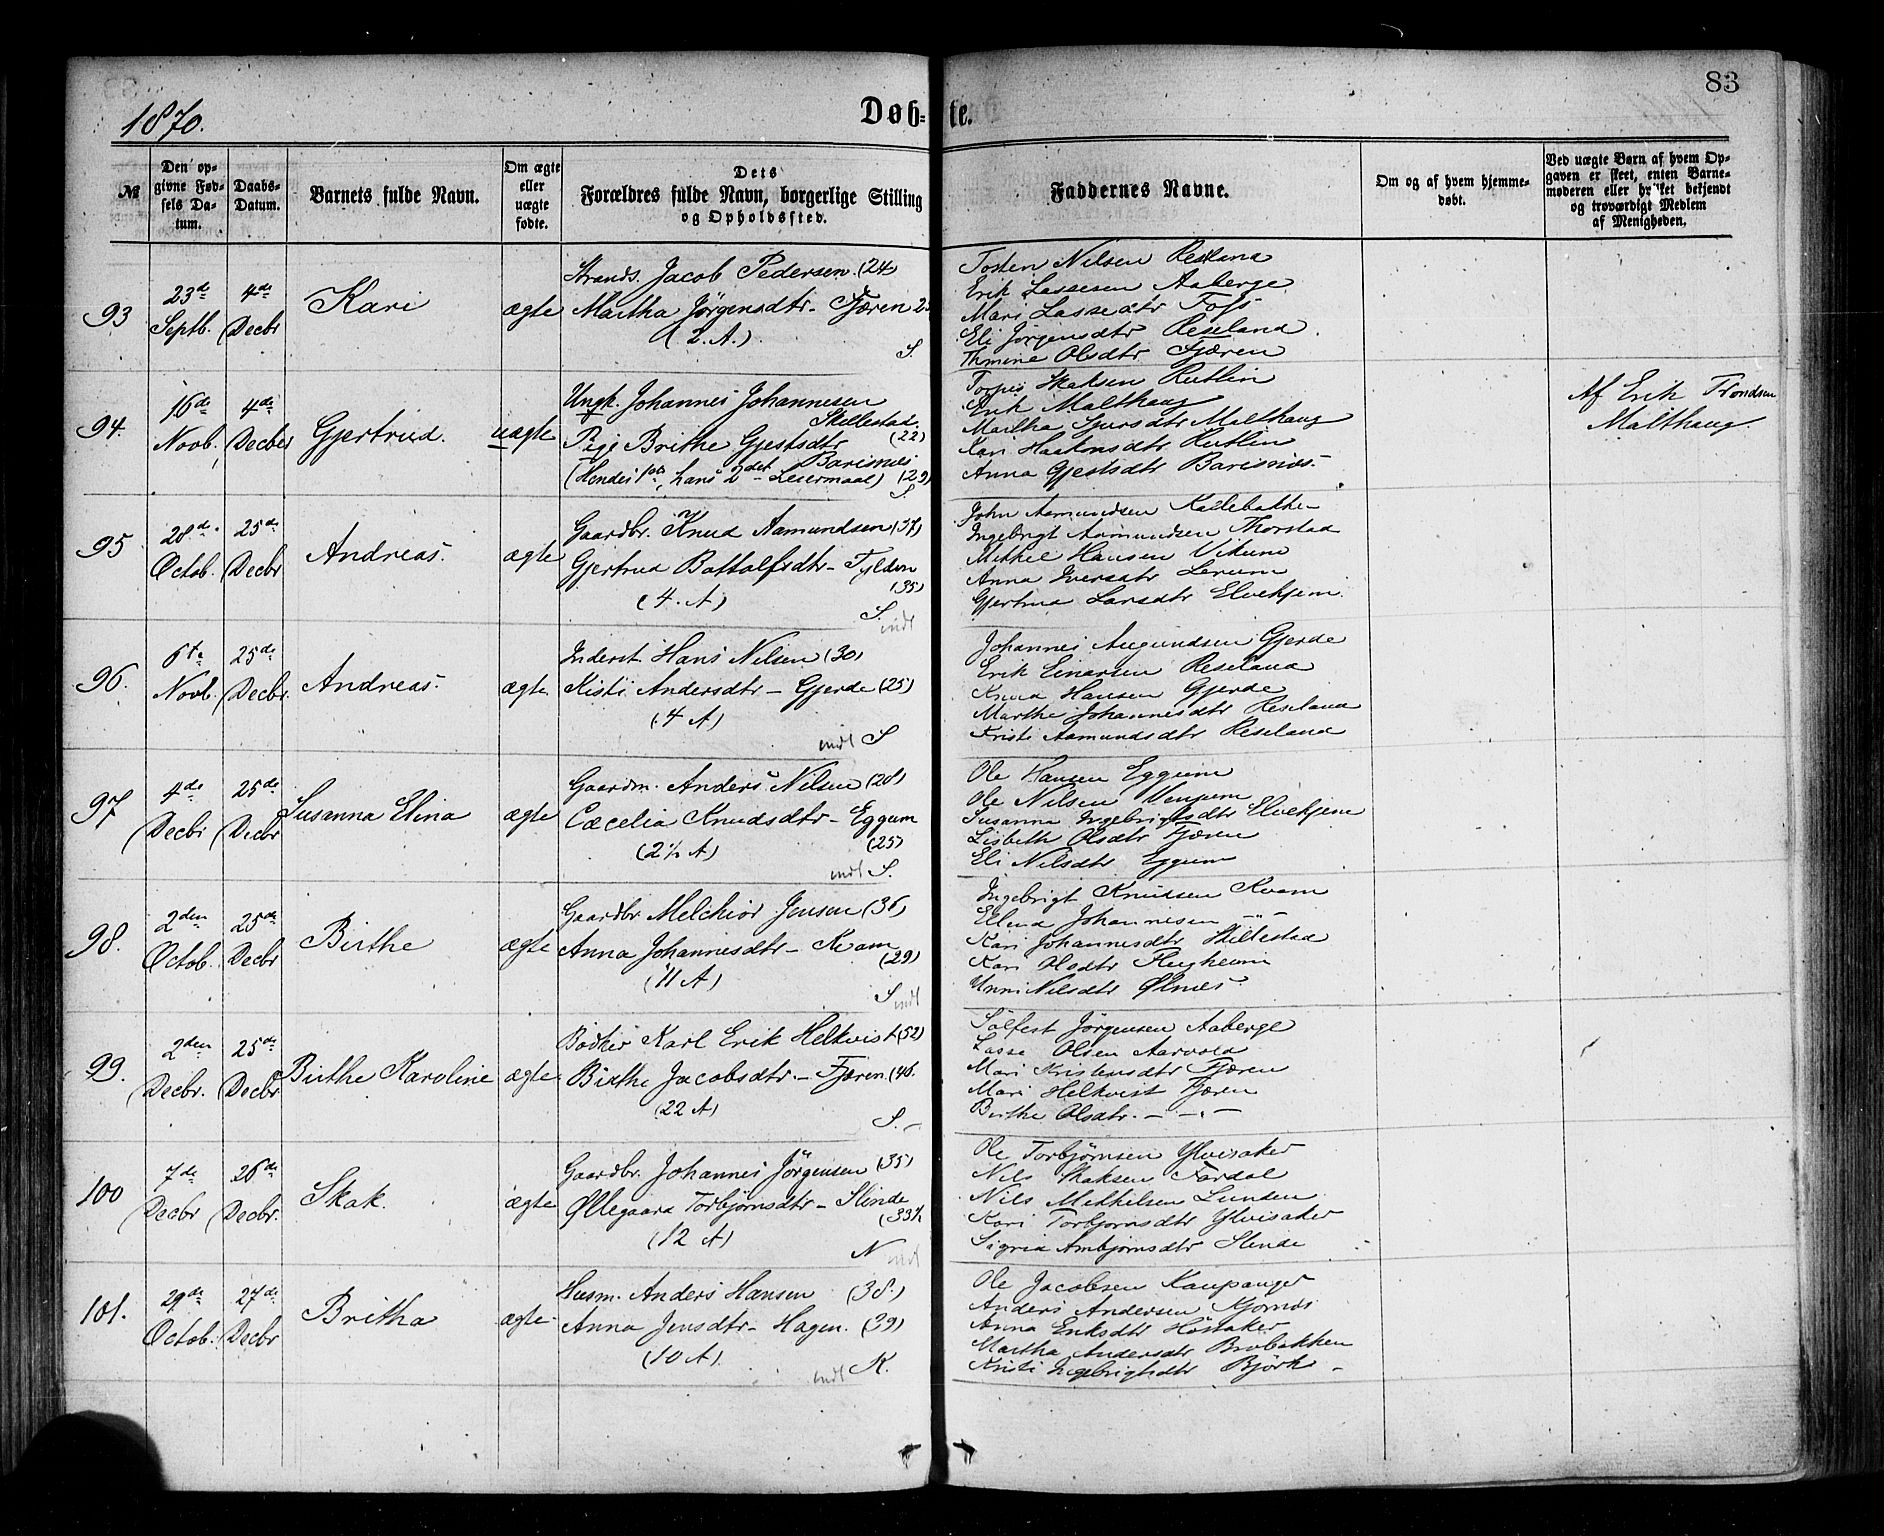 83
1870.
Døb-te.
№
Den op-
givne Fød-
sels Da-
tum.
Daabs-
Datum.
Barnets fulde Navn.
Om ægte
eller
uægte
fødte.
Dets
Forældres fulde Navn, borgerlige Stilling
og Opholdssted.
Faddernes Navne.
Om og af hvem hjemme-
døbt.
Ved uægte Børn af hvem Op-
gaven er skeet, enten Barne-
moderen eller hvilket bekjendt
og troværdigt Medlem
af Menigheden.
93
23de
Septb.
4de
Decbr
Kari
ægte
Strands. Jacob Pedersen (24)
Martha Jörgensdtr - Fjæren
(2. A.)
S.
Tosten Nilsen Reseland
Erik Lassesen Aaberge
Mari Lassesdtr Foss
Eli Jörgensdtr Reseland
Thmine Olsdtr Fjæren
94.
16de
Novb.
4de
Decber
Gjertrud.
uægte
Ungk. Johannes Johannesen
Skillestad.
(22)
Pige Brithe Gjestsdtr
Barisnes
(Hendes 1ste, hans 2det Leiermaal) (29)
S.
Torpes Skaksen Rutlin
Erik Malthaug
Martha Sjursdtr Malthaug
Kari Haakonsdtr Rutlin
Anna Gjestsdtr Barisnæs.
Af Erik Trondsen
Malthaug
95
28de
Octob.
25de
Decbr
Andreas.
ægte
Gaardbr. Knud Aamundsen (37)
Gjertrud Bottolfsdtr - Fylden
(35)
(4. A)
S.
indt
John Aamundsen Kallebakke
Ingebrigt Aamundsen Thorstad
Mikkel Hansen Vikum
Anna Iversdtr Lerum
Gjertrud Larsdtr Elvekjem.
96.
6te
Novb.
25de
Decbr.
Andreas.
ægte
Inderst. Hans Nilsen (30)
Kisti Andersdtr - Gjerde (25)
(4 A)
indt S
Johannes Augundsen Gjerde
Erik Einarsen Reseland
Knud Hansen Gjerde
Marthe Johannesdtr Reseland
Kristi Aamundsdtr Reseland
97
4de
Decbr
25de
Decbr
Susanna Elina
ægte
Gaardm. Anders Nilsen (28)
Cæcelia Knudsdtr - Eggum
(25)
(2½ A)
indt S.
Ole Hansen Eggum
Ole Nilsen Venjum
Susanna Ingebrigtsdtr Elvekjem
Lisbeth Olsdtr Fjæren
Eli Nilsdtr Eggum
98.
2den
Octob.
25de
Decbr
Birthe
ægte
Gaardbr Melchior Jensen (36)
Anna Johannesdtr - Kvam
(29)
(11 A)
S. indt
Ingebrigt Knudsen Kvam
Ellend Johannesen -"-
Kari Johannesdtr Skillestad
Kari Olsdtr Flugheim
Unni Nilsdtr Ølnæs.
99.
2den
Decbr.
25de
Decbr
Birthe Karoline
ægte
Bødker Karl Erik Helkvist (52)
Birthe Jacobsdtr. - Fjæren (46.
(22 A)
S. -
Sølfest Jörgensen Aaberge
Lasse Olsen Aarvold
Mari Kristensdtr Fjæren
Mari Helkvist Fjæren
Birthe Olsdtr. - -"-
100
7de
Decbr
26de
Decbr.
Skak.
ægte
Gaardbr. Johannes Jörgensen (35)
Øllegaard Torbjørnsdtr - Slinde
(33½
(12 A)
N indt
Ole Torbjørnsen Ylvisaker
Nils Skaksen Fardal
Nils Mikkelsen Lunden
Kari Torbjørnsdtr Ylvisaker
Sigrid Ambjørnsdtr Slinde
101.
29de
Octob.
27de
Decbr
Britha
ægte
Husm. Anders Hansen (38.)
Anna Jensdtr - Hagen. (39)
(10 A)
indt K.
Ole Jacobsen Kaupanger
Anders Andersen Kjørnæs
Anna Eriksdtr
Martha Andersdtr Brobakken
Kristi Ingebrigtsdtr Björk -